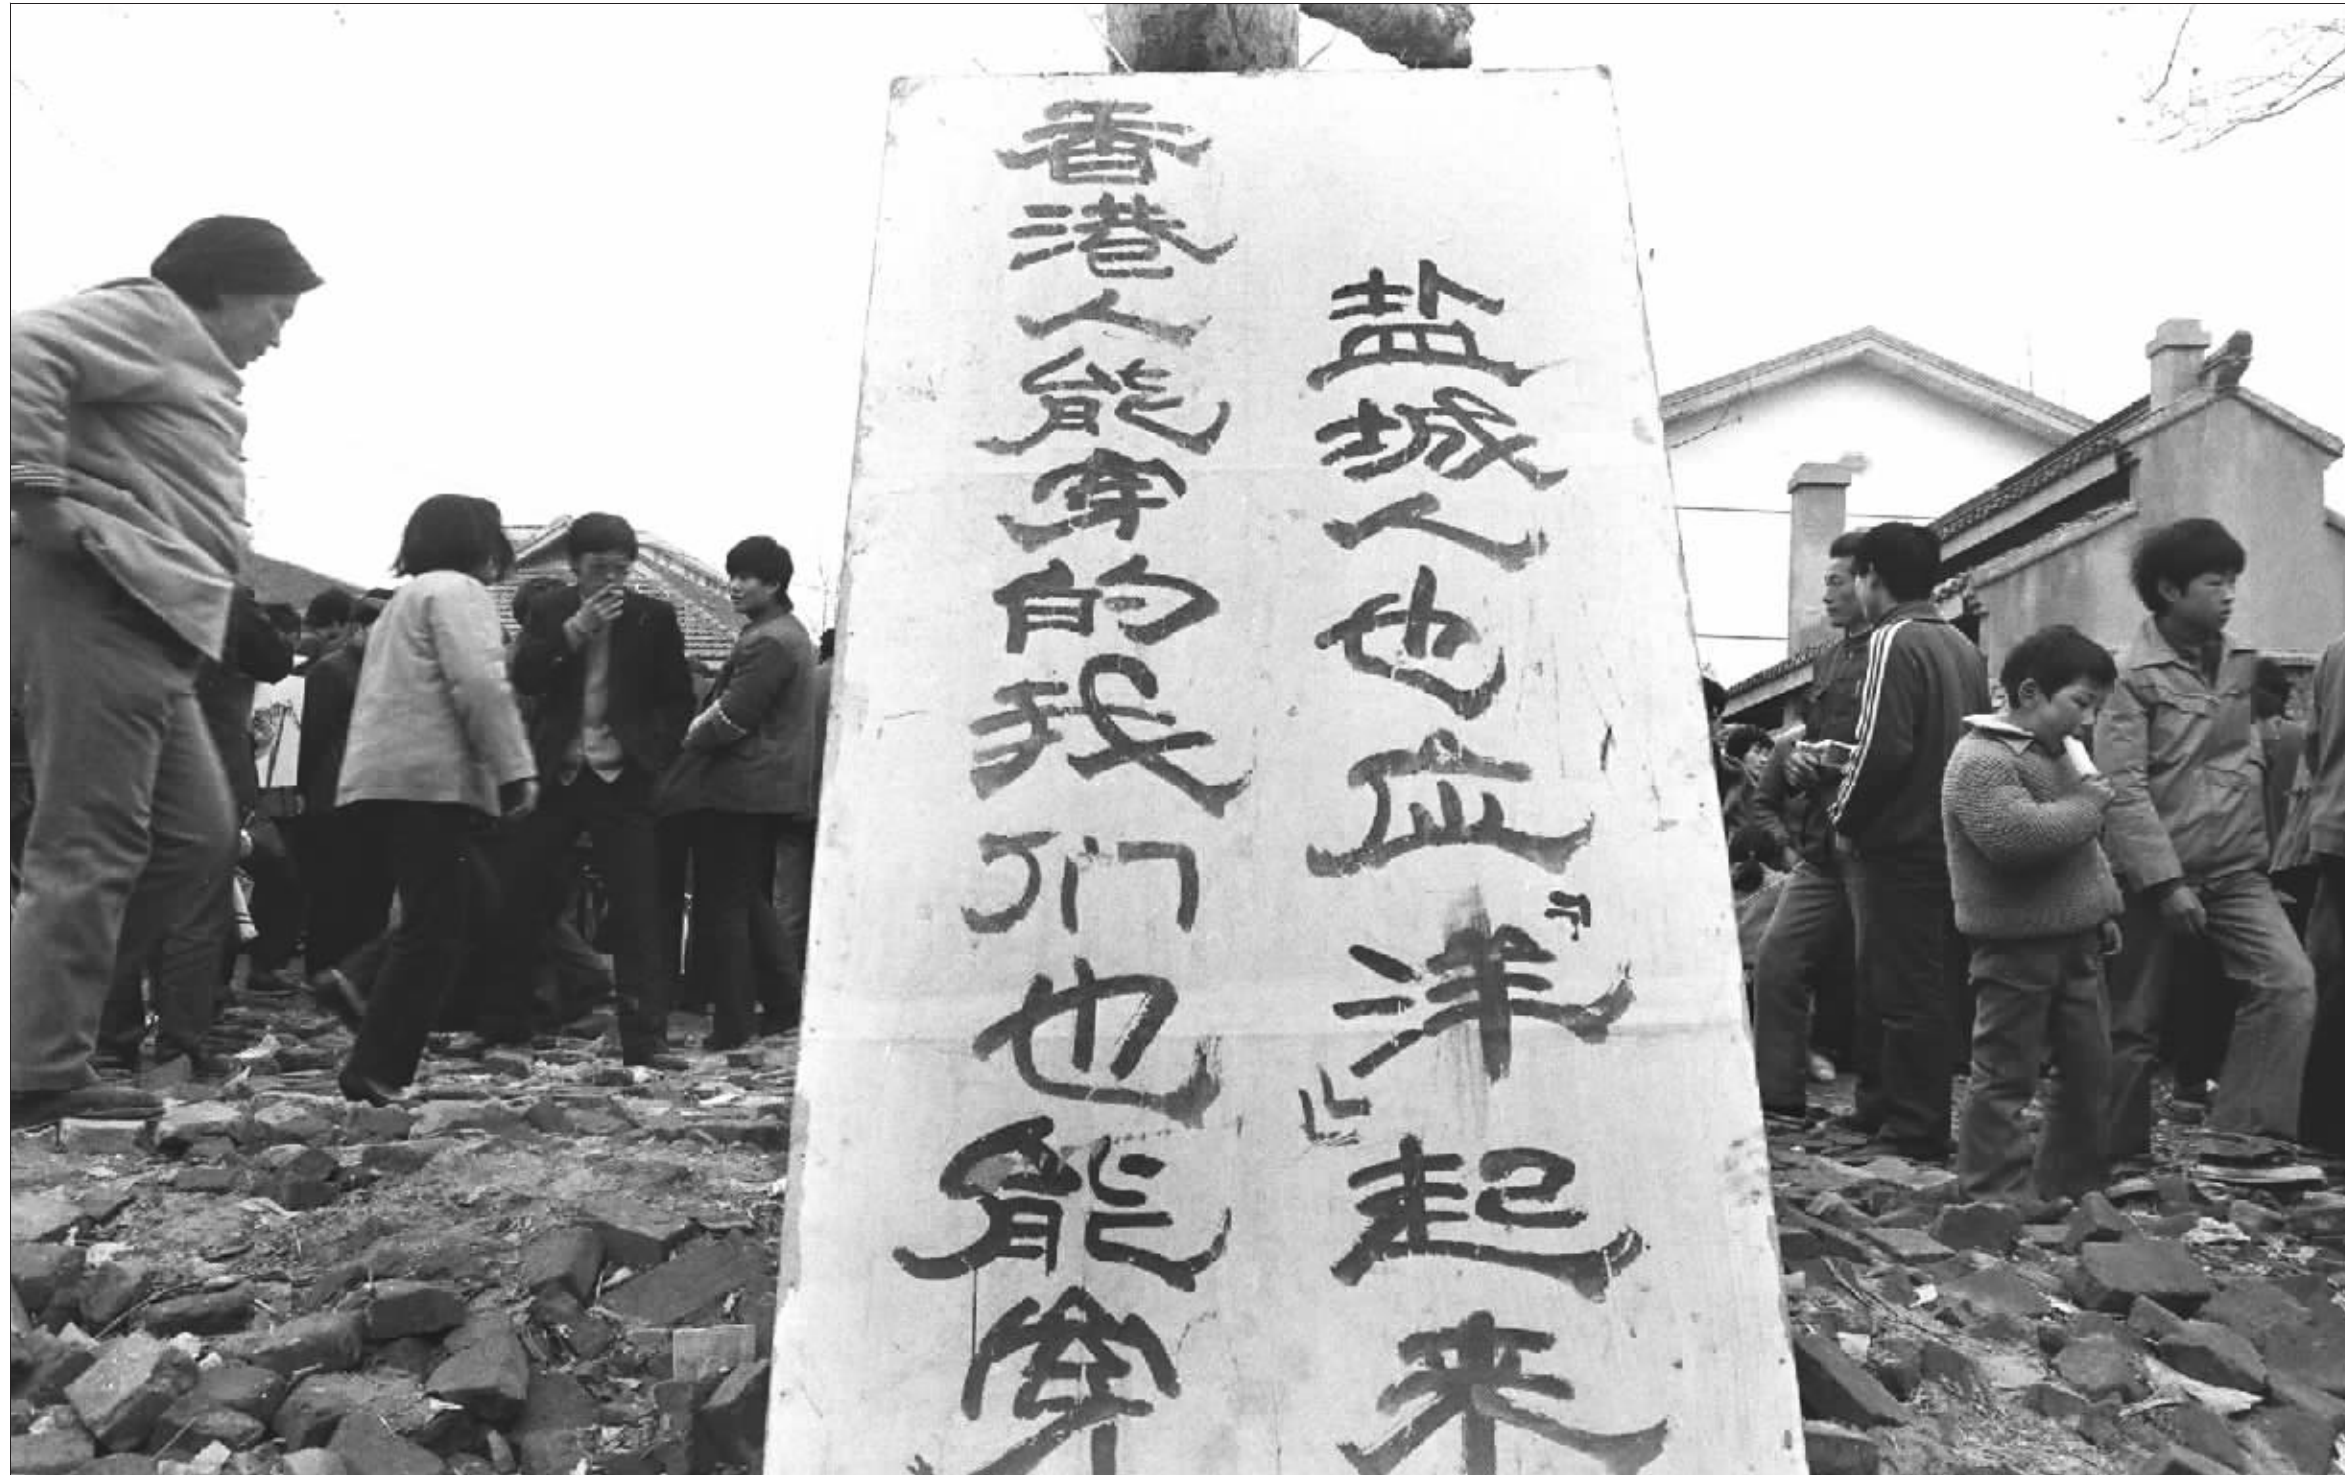 盐城人也应『洋』起来
香港人能穿的我们也能穿